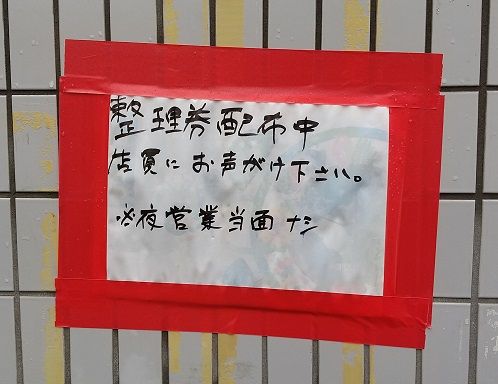 整理券配布中
店員にお声がけ下さい。
※夜営業当面ナシ